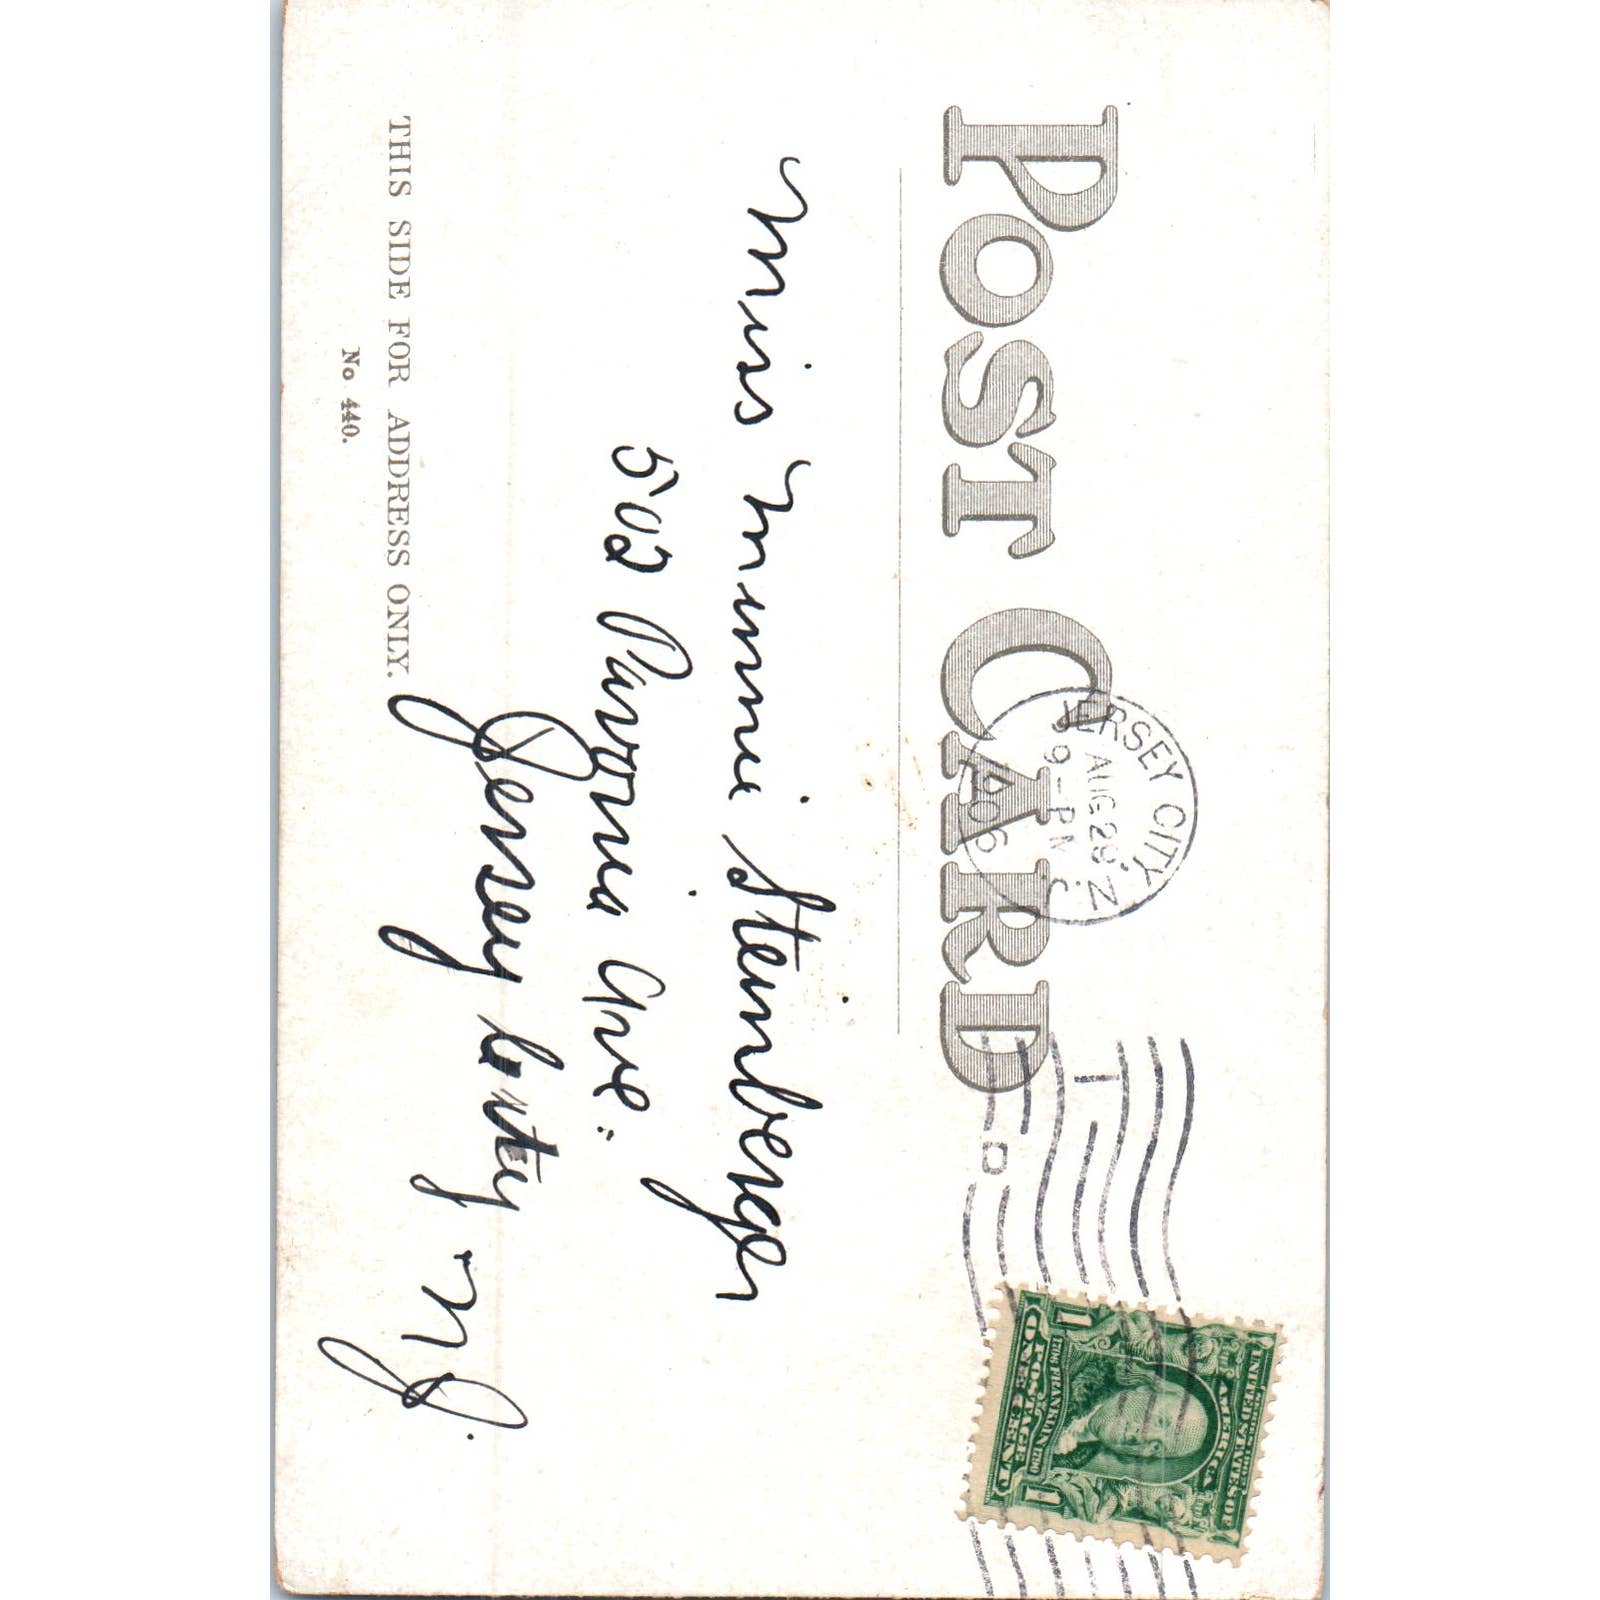 POST CARD
JERSEY CITY, N.J.
AUG 29
9-PM
1906
Miss Minnie Steinberger
502 Pavonia Ave.
Jersey City
N.J.
THIS SIDE FOR ADDRESS ONLY.
No 440.
UNITED STATES OF
AMERICA
1706 FRANKLIN 1790
POSTAGE
1 ONE CENT 1